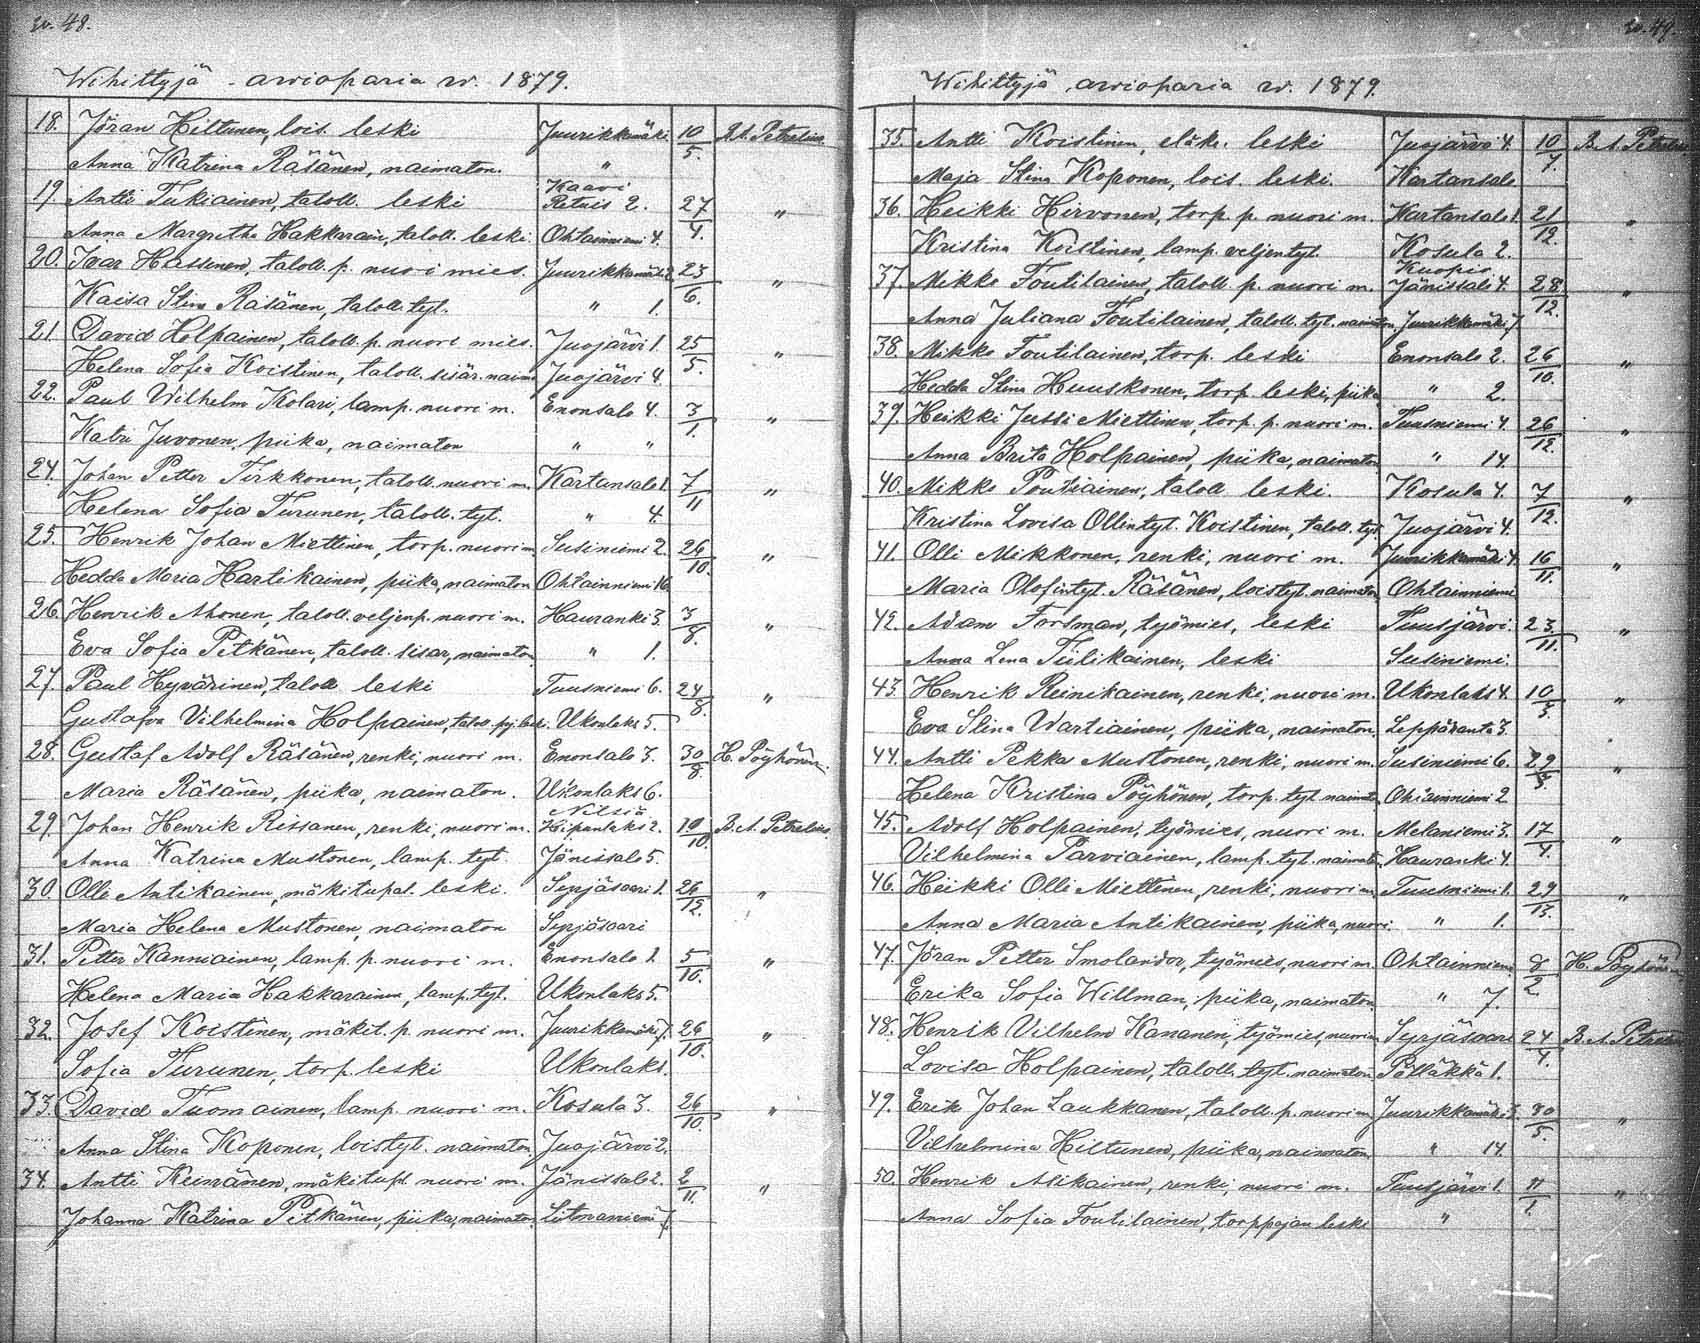 w. 48.
Wihittyjä arvioparia w. 1879.
18. Jöran Hiltunen, lois. leski Juurikkamäki 10/5. B.A. Petrelius
Anna Katrina Räsänen, naimaton. "
19. Antti Tukiainen, taloll. leski Kaavi Retuis 2. 27/4. "
Anna Margretha Hakkarain, taloll. leski. Ohtainniemi 4.
20. Ivar Hassinen, taloll. p. nuori mies. Juurikkamäki 2. 23/6. "
Kaisa Stina Räsänen, taloll. tyt. " 1.
21. David Holpainen, taloll. p. nuori mies. Juojärvi 1. 25/5. "
Helena Sofia Koistinen, taloll. sisär. naim. Juojärvi 4.
22. Paul Wilhelm Kolari, lamp. nuori m. Enonsalo 4. 3/1. "
Katri Juvonen, piika, naimaton " "
24. Johan Petter Tirkkonen, taloll. nuori m. Kartansalo 1. 7/11 "
Helena Sofia Turunen, taloll. tyt. " 4.
25. Henrik Johan Miettinen, torp. nuori m. Susiniemi 2. 26/10. "
Hedda Maria Hartikainen, piika, naimaton Ohtainniemi 16.
26. Henrik Ahonen, taloll. veljenp. nuori m. Hauranki 3. 3/8. "
Eva Sofia Pitkänen, taloll. sisar, naimaton " 1.
27. Paul Hyvärinen, taloll leski Tuusniemi 6. 24/8. "
Gustafva Vilhelmina Holpainen, taloll. pj. leski. Ukonlaks 5.
28. Gustaf Adolf Räsänen, renki, nuori m. Enonsalo 3. 30/8. H. Pöyhönen.
Maria Räsänen, piika, naimaton. Ukonlaks 6.
29. Johan Henrik Rissanen, renki, nuori m. Nilsiä Kipanlaks 2. 19/10. B.A. Petrelius.
Anna Katrina Mustonen, lamp. tyt. Jänissalo 5.
30. Olli Antikainen, mäkitupal. leski. Syrjäsaari 1. 26/12. "
Maria Helena Mustonen, naimaton Syrjäsaari
31. Petter Kanniainen, lamp. p. nuori m. Enonsalo 1. 5/10. "
Helena Maria Hakkarainen, lamp. tyt. Ukonlaks 5.
32. Josef Koistinen, mäkit. p. nuori m. Juurikkamäki 7. 26/10. "
Sofia Turunen, torp. leski Ukonlaks.
33. David Tuomainen, lamp. nuori m. Kosula 3. 26/10. "
Anna Stina Koponen, loistyt. naimaton Juojärvi 2.
34. Antti Keinänen, mäkitupl. nuori m. Jänissalo 2. 2/11. "
Johanna Katrina Pitkänen, piika, naimaton Litmaniemi 7.
w. 49.
Wihittyjä arvioparia w. 1879.
35. Antti Koistinen, eläk. leski Juojärvi 4. 10/7. B.A. Petrelius
Maja Stina Koponen, lois. leski. Kartansalo
36. Heikki Hirvonen, torp. p. nuori m. Kartansalo 1. 21/12. "
Kristina Koistinen, lamp. veljentyt. Kosula 2.
37. Mikko Toutilainen, taloll. p. nuori m. Kuopio Jänissalo 4. 28/12. "
Anna Juliana Toutilainen, taloll. tyt. naimaton, Juurikkamäki 7
38. Mikko Toutilainen, torp. leski Enonsalo 2. 26/10. "
Hedda Stina Huuskonen, torp. leski, piika " 2.
39. Heikki Jussi Miettinen, torp. p. nuori m. Tuusniemi 4. 26/12. "
Anna Brita Holpainen, piika, naimaton " 14.
40. Mikko Poutiainen, taloll leski. Kosula 4. 7/12. "
Kristina Lovisa Ollintyt. Koistinen, taloll. tyt. Juojärvi 4.
41. Olli Mikkonen, renki, nuori m. Juurikkamäki 4. 16/11. "
Maria Olofintyt. Räsänen, loistyt. naimaton, Ohtainniemi
42. Adam Forsman, työmies, leski Tuusjärvi. 23/11. "
Anna Lena Tiilikainen, leski Susiniemi.
43. Henrik Reinikainen, renki, nuori m. Ukonlaks 4. 10/3. "
Eva Stina Wartiainen, piika, naimaton, Leppäranta 3.
44. Antti Pekka Mustonen, renki, nuori m. Susiniemi 6. 29/3. "
Helena Kristina Pöyhönen, torp. tyt. naimaton, Ohtainniemi 2
45. Adolf Holpainen, työmies, nuori m. Melaniemi 3. 17/4. "
Vilhelmina Parviainen, lamp. tyt. naimaton, Hauranki 4.
46. Heikki Olli Miettinen, renki, nuori m. Tuusniemi 1. 29/13. "
Anna Maria Antikainen, piika, nuori. " 1.
47. Jöran Petter Smolander, työmies, nuori m. Ohtainniemi 8/2. H. Pöyhönen
Erika Sofia Willman, piika, naimaton. " 7.
48. Henrik Vilhelm Kananen, työmies, nuori m. Syrjäsaari 24/4. B.A. Petrelius
Lovisa Holpainen, taloll. tyt. naimaton Pölläkkä 1.
49. Erik Johan Laukkanen, taloll. p. nuori m, Juurikkamäki 3. 30/5. "
Vilhelmina Hiltunen, piika, naimaton. " 14.
50. Henrik Asikainen, renki, nuori m. Tuusjärvi 1. 11/1. "
Anna Sofia Toutilainen, torppajan leski "